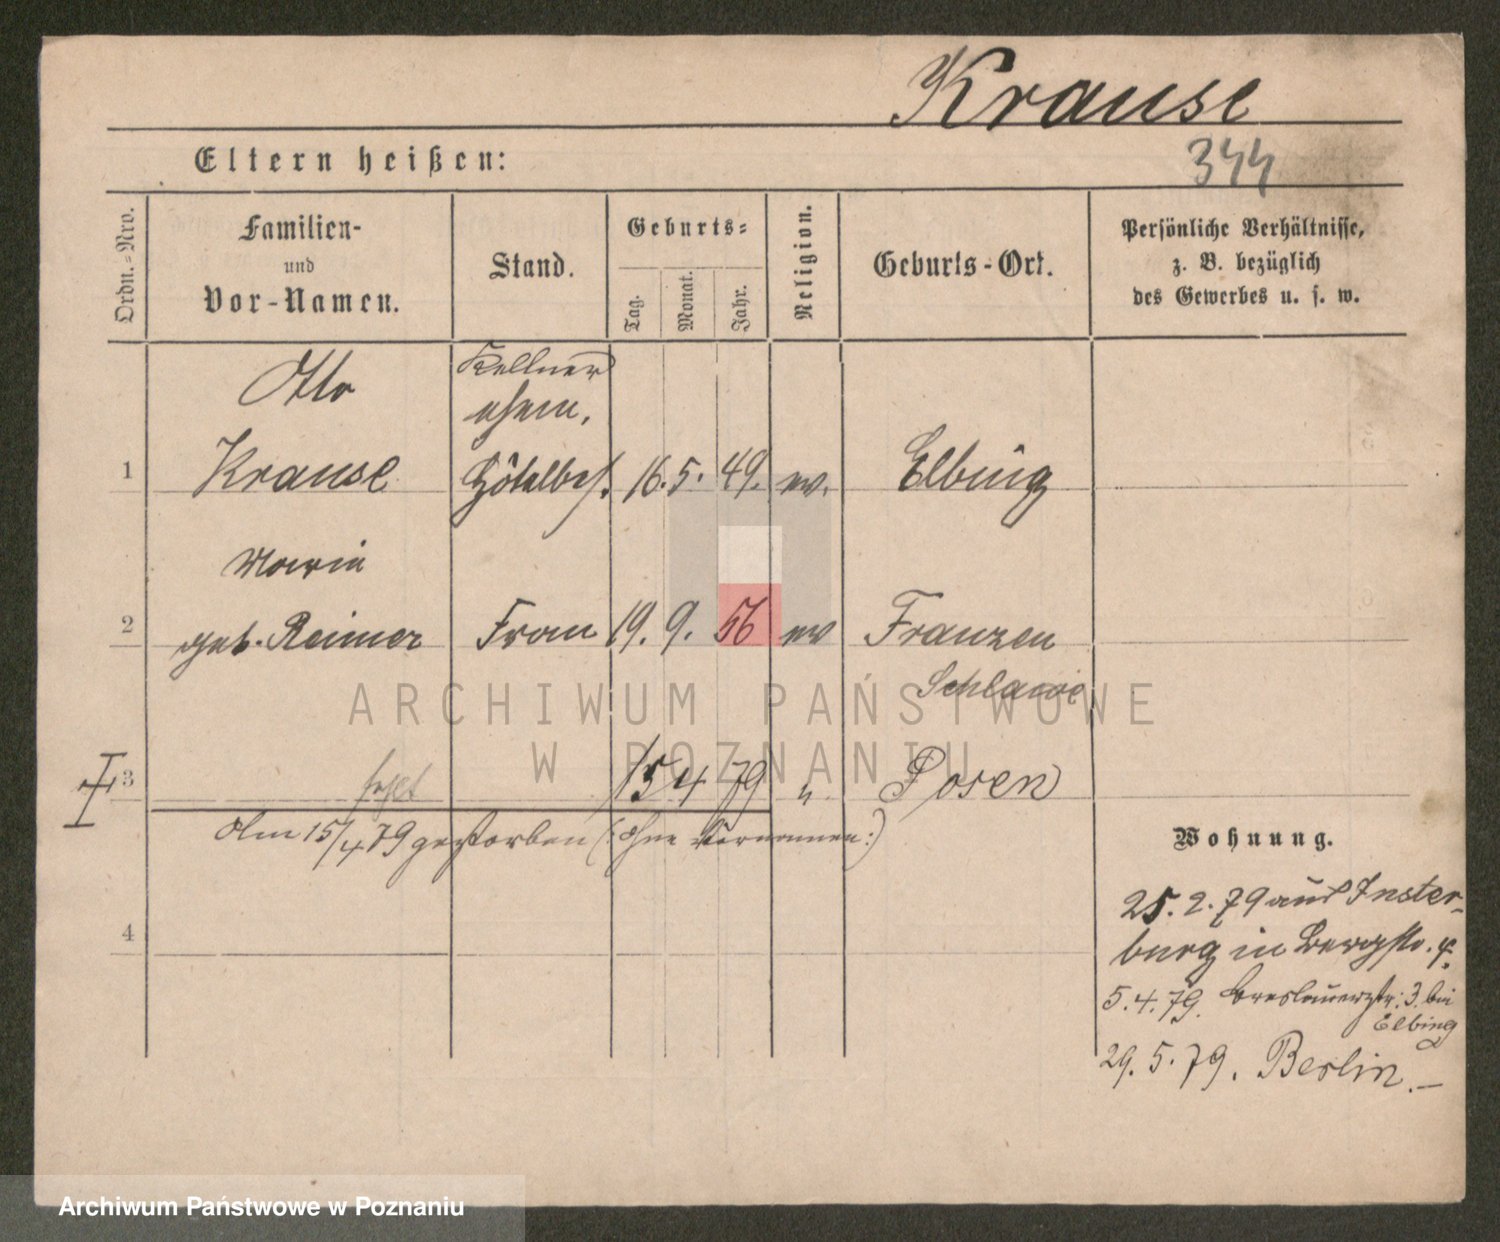 Krause
344
Eltern heißen:
Ordn.-Nro.
Familien-
und
Vor-Namen.
Stand.
Geburts-
Tag.
Monat.
Jahr.
Religion.
Geburts-Ort.
Persönliche Verhältnisse,
z. B. bezüglich
des Gewerbes u. s. w.
Otto
Kellner
ehem.
1 Krause Hôtelbes. 16. 5. 49. ev. Elbing
Marie
2 geb. Reimer Frau 19. 9. 56 ev Franzen
Schlawe
3 15 4 79 " Posen
Am 15/4 79 gestorben (: ohne Vornamen :)
4
Wohnung.
25. 2. 79 aus Inster-
burg in Bergstr. 4.
5. 4. 79. Breslauerstr. 3. bei
Elbing
29. 5. 79. Berlin. —
ARCHIWUM PAŃSTWOWE
W POZNANIU
Archiwum Państwowe w Poznaniu